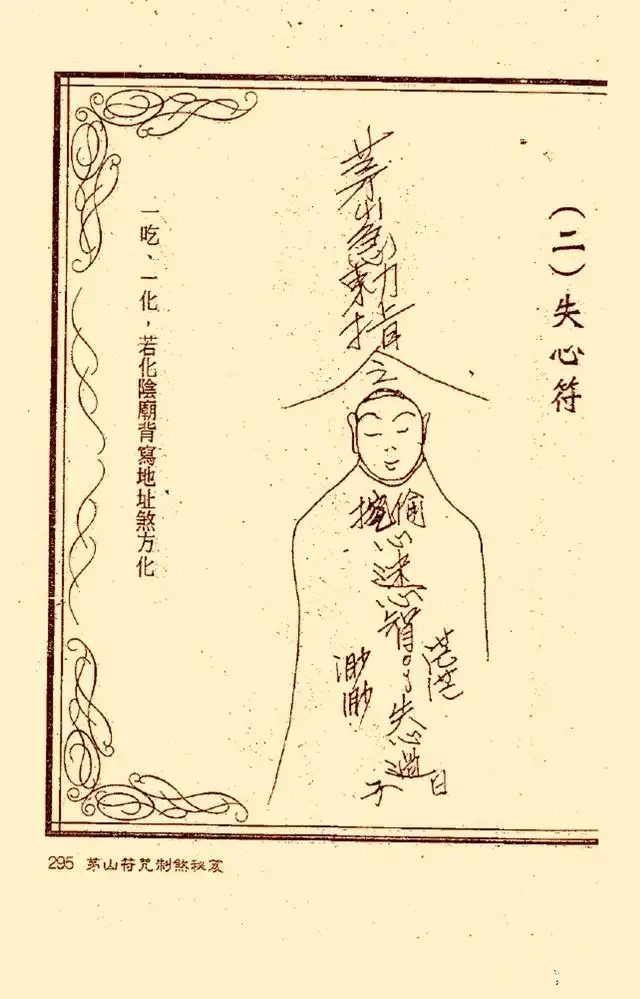 （二）失心符
茅山急勅旨
令
偷
心迷心智
失心過
茫茫
渺渺
日
子
一吃、一化，若化陰廟背寫地址煞方化
295 茅山符咒制煞秘笈